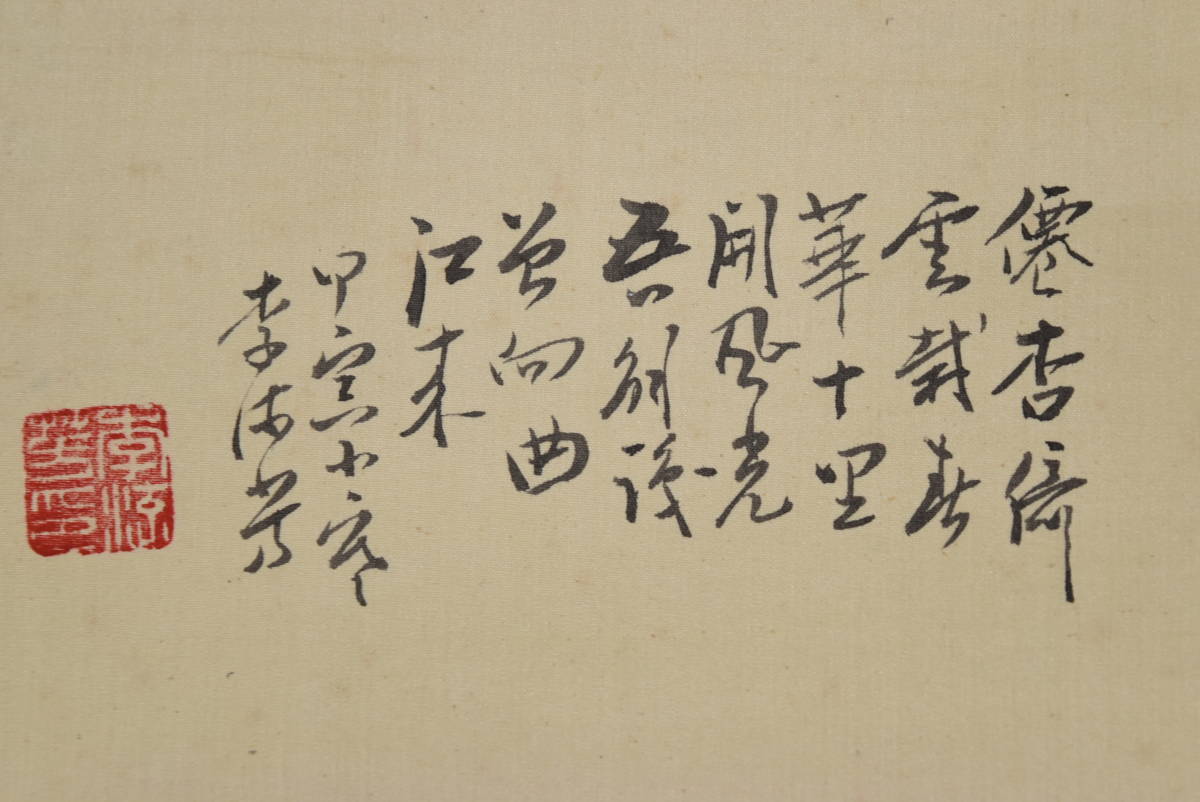 僊杏倚
雲栽春
華十里
開風光
吾剛識
曾向曲
江來
甲寅小寒
李沛
李印